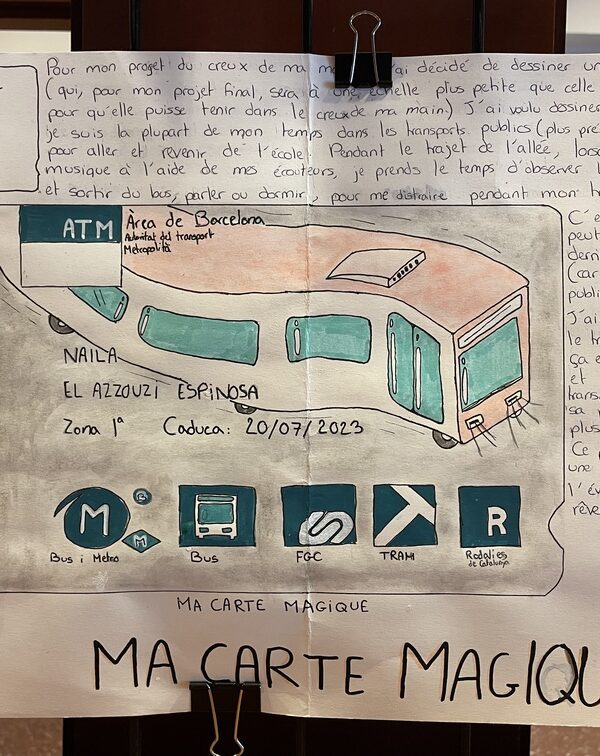 Pour mon projet du creux de ma m ai décidé de dessiner un
(qui, pour mon projet final, sera à une échelle plus petite que celle
pour qu'elle puisse tenir dans le creux de ma main.) J'ai voulu dessiner
je suis la plupart de mon temps dans les transports publics (plus pré
pour aller et revenir de l'école. Pendant le trajet de l'allée, lors
musique à l'aide de mes écouteurs, je prends le temps d'observer l
et sortir du bus, parler ou dormir, pour me distraire pendant mon tr
C'e
peut
derni
(car
public
J'ai
le tr
ça e
et
trans
sa
plus
Ce p
une
l'év
rêve
ATM
Àrea de Barcelona
Autoritat del transport
Metropolità
NAILA
EL AZZOUZI ESPINOSA
Zona 1ª Caduca: 20/07/2023
M
M
R
Bus i Metro
Bus
FGC
TRAM
Rodalies
de Catalunya
MA CARTE MAGIQUE
MA CARTE MAGIQU